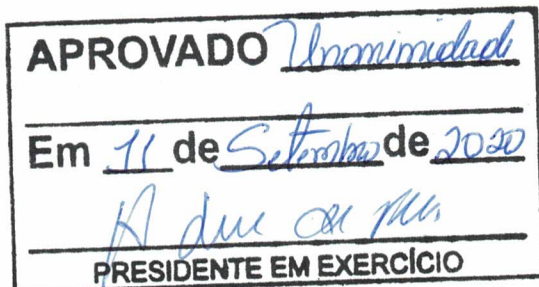 APROVADO Unanimidade
Em 11 de Setembro de 2020
PRESIDENTE EM EXERCÍCIO